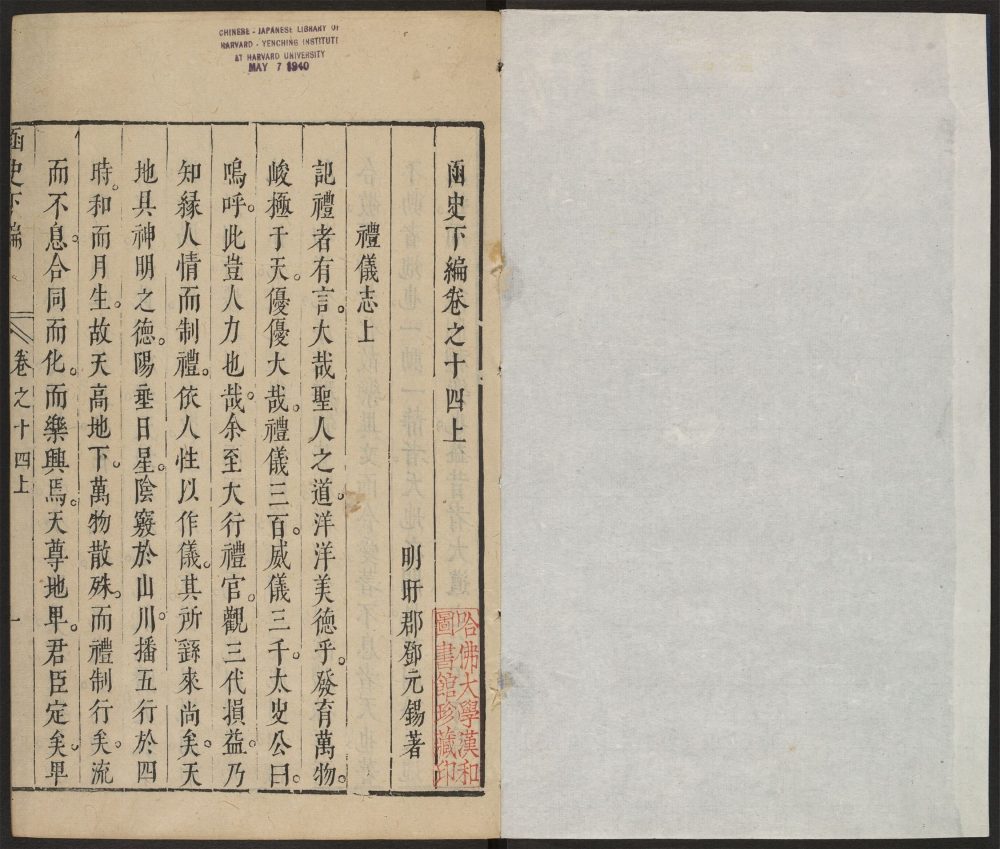 CHINESE - JAPANESE LIBRARY OF
HARVARD - YENCHING INSTITUTE
AT HARVARD UNIVERSITY
MAY 7 1940
函史下編卷之十四上
明旴郡鄧元錫著
禮儀志上
記禮者有言。大哉聖人之道。洋洋美德乎。發育萬物。
峻極于天。優優大哉。禮儀三百。威儀三千。太史公曰。
嗚呼。此豈人力也哉。余至大行禮官。觀三代損益。乃
知緣人情而制禮。依人性以作儀。其所繇來尚矣。天
地具神明之德。陽垂日星。陰竅於山川。播五行於四
時。和而月生。故天高地下。萬物散殊。而禮制行矣。流
而不息。合同而化。而樂興焉。天尊地卑。君臣定矣。卑
函史下編
卷之十四上
一
哈佛大學漢和
圖書館珍藏印